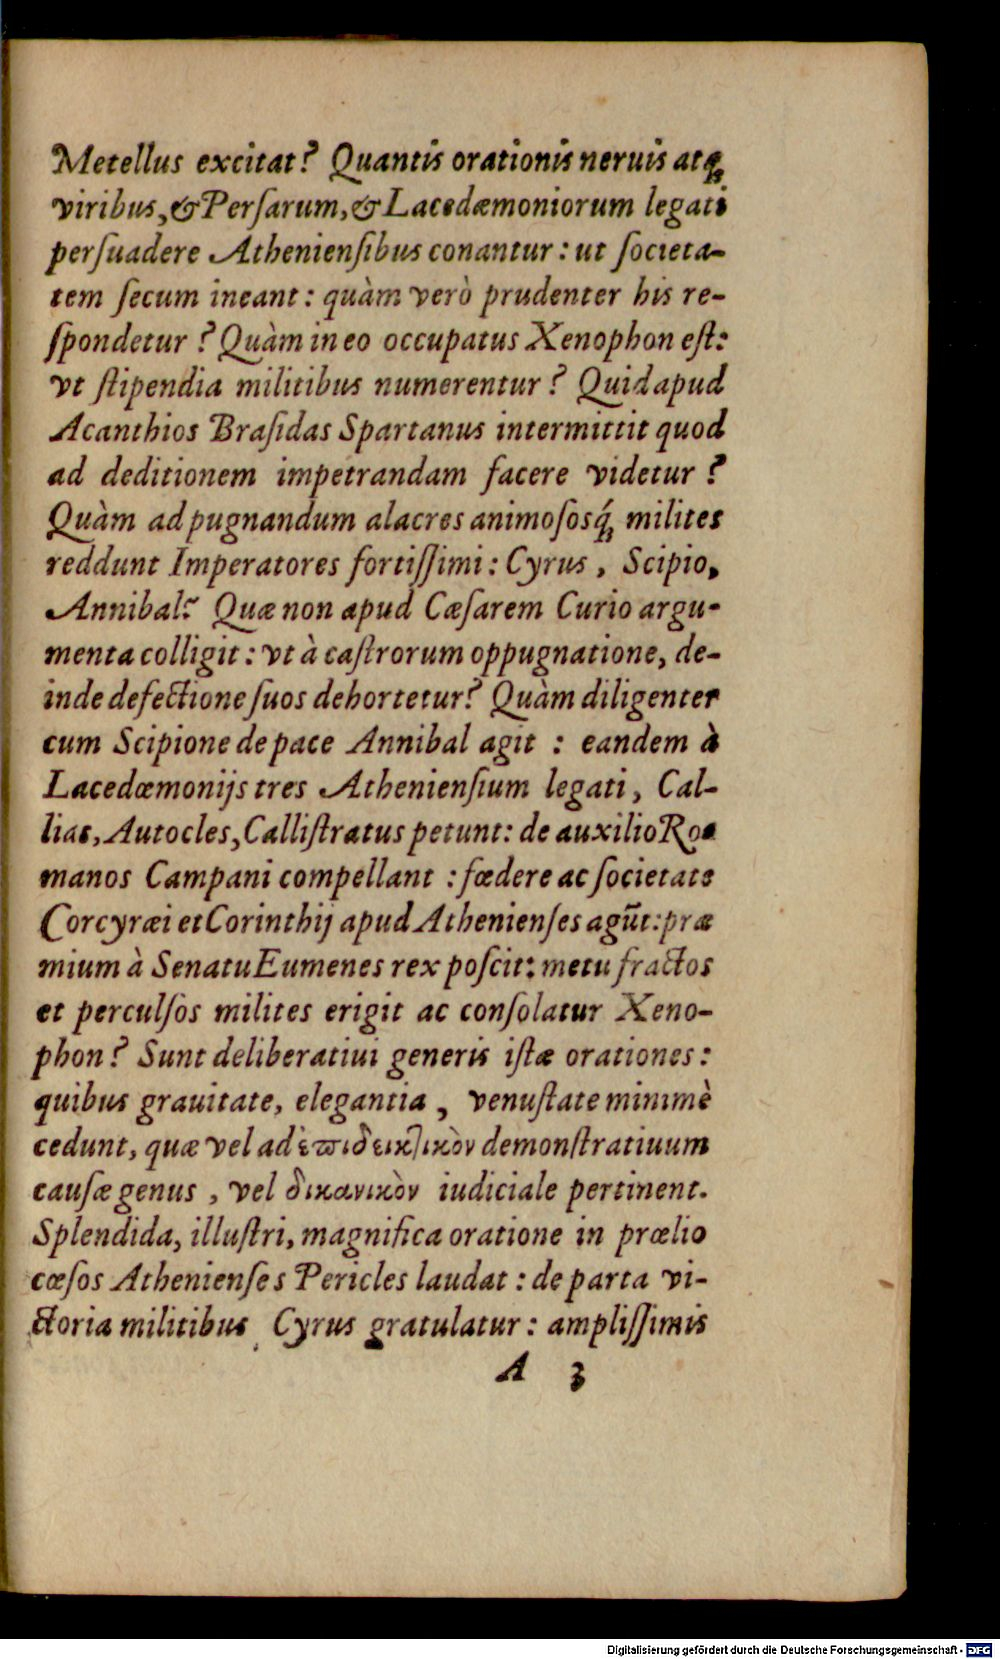 Metellus excitat? Quantis orationis neruis atq;
viribus, & Persarum, & Lacedæmoniorum legati
persuadere Atheniensibus conantur: ut societa-
tem secum ineant: quàm verò prudenter his re-
spondetur? Quàm in eo occupatus Xenophon est:
vt stipendia militibus numerentur? Quid apud
Acanthios Brasidas Spartanus intermittit quod
ad deditionem impetrandam facere videtur?
Quàm ad pugnandum alacres animososq́; milites
reddunt Imperatores fortissimi: Cyrus, Scipio,
Annibal? Quæ non apud Cæsarem Curio argu-
menta colligit: vt à castrorum oppugnatione, de-
inde defectione suos dehortetur? Quàm diligenter
cum Scipione de pace Annibal agit : eandem à
Lacedæmonijs tres Atheniensium legati, Cal-
lias, Autocles, Callistratus petunt: de auxilio Ro-
manos Campani compellant : fœdere ac societate
Corcyræi et Corinthij apud Athenienses agūt: præ
mium à Senatu Eumenes rex poscit: metu fractos
et perculsos milites erigit ac consolatur Xeno-
phon? Sunt deliberatiui generis istæ orationes:
quibus grauitate, elegantia, venustate minimè
cedunt, quæ vel ad ἐπιδεικτικὸν demonstratiuum
causæ genus, vel δικανικὸν iudiciale pertinent.
Splendida, illustri, magnifica oratione in prœlio
cæsos Athenienses Pericles laudat: de parta vi-
ctoria militibus Cyrus gratulatur: amplissimis
A 3
Digitalisierung gefördert durch die Deutsche Forschungsgemeinschaft - DFG